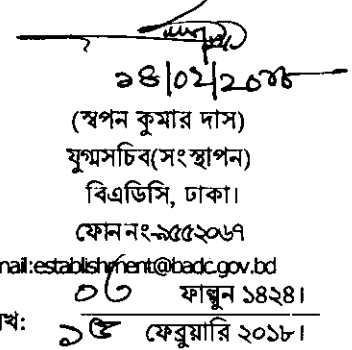 (স্বপন কুমার দাস)
যুগ্মসচিব(সংস্থাপন)
বিএডিসি, ঢাকা।
ফোন নং-৯৫৫২০৬৭
mail:establishment@badc.gov.bd
০৩ ফাল্গুন ১৪২৪।
খ: ১৫ ফেব্রুয়ারি ২০১৮।